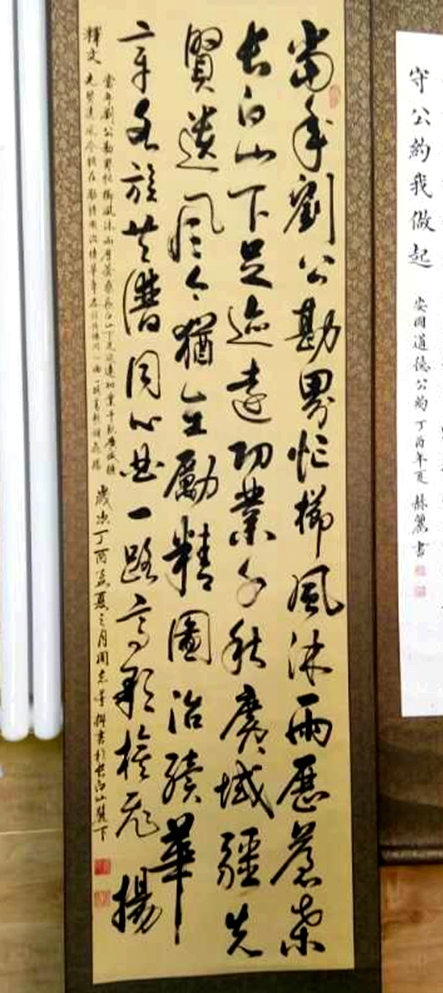 守公約我做起
安圖道德公約丁酉年夏赫麗書
當年劉公勘界忙櫛風沐雨歷蒼桑
長白山下足迹遠功業千秋廣域疆先
賢遺風今猶在勵精圖治續華
章各族共譜同心曲一路高歌旗飛揚
釋文 當年劉公勘界忙櫛風沐雨歷蒼桑長白山下足迹遠功業千秋廣域疆
先賢遺風今猶在勵精圖治續華章各族共譜同心曲一路高歌旗飛揚
歲次丁酉孟夏之月周撰書於長白山麓下